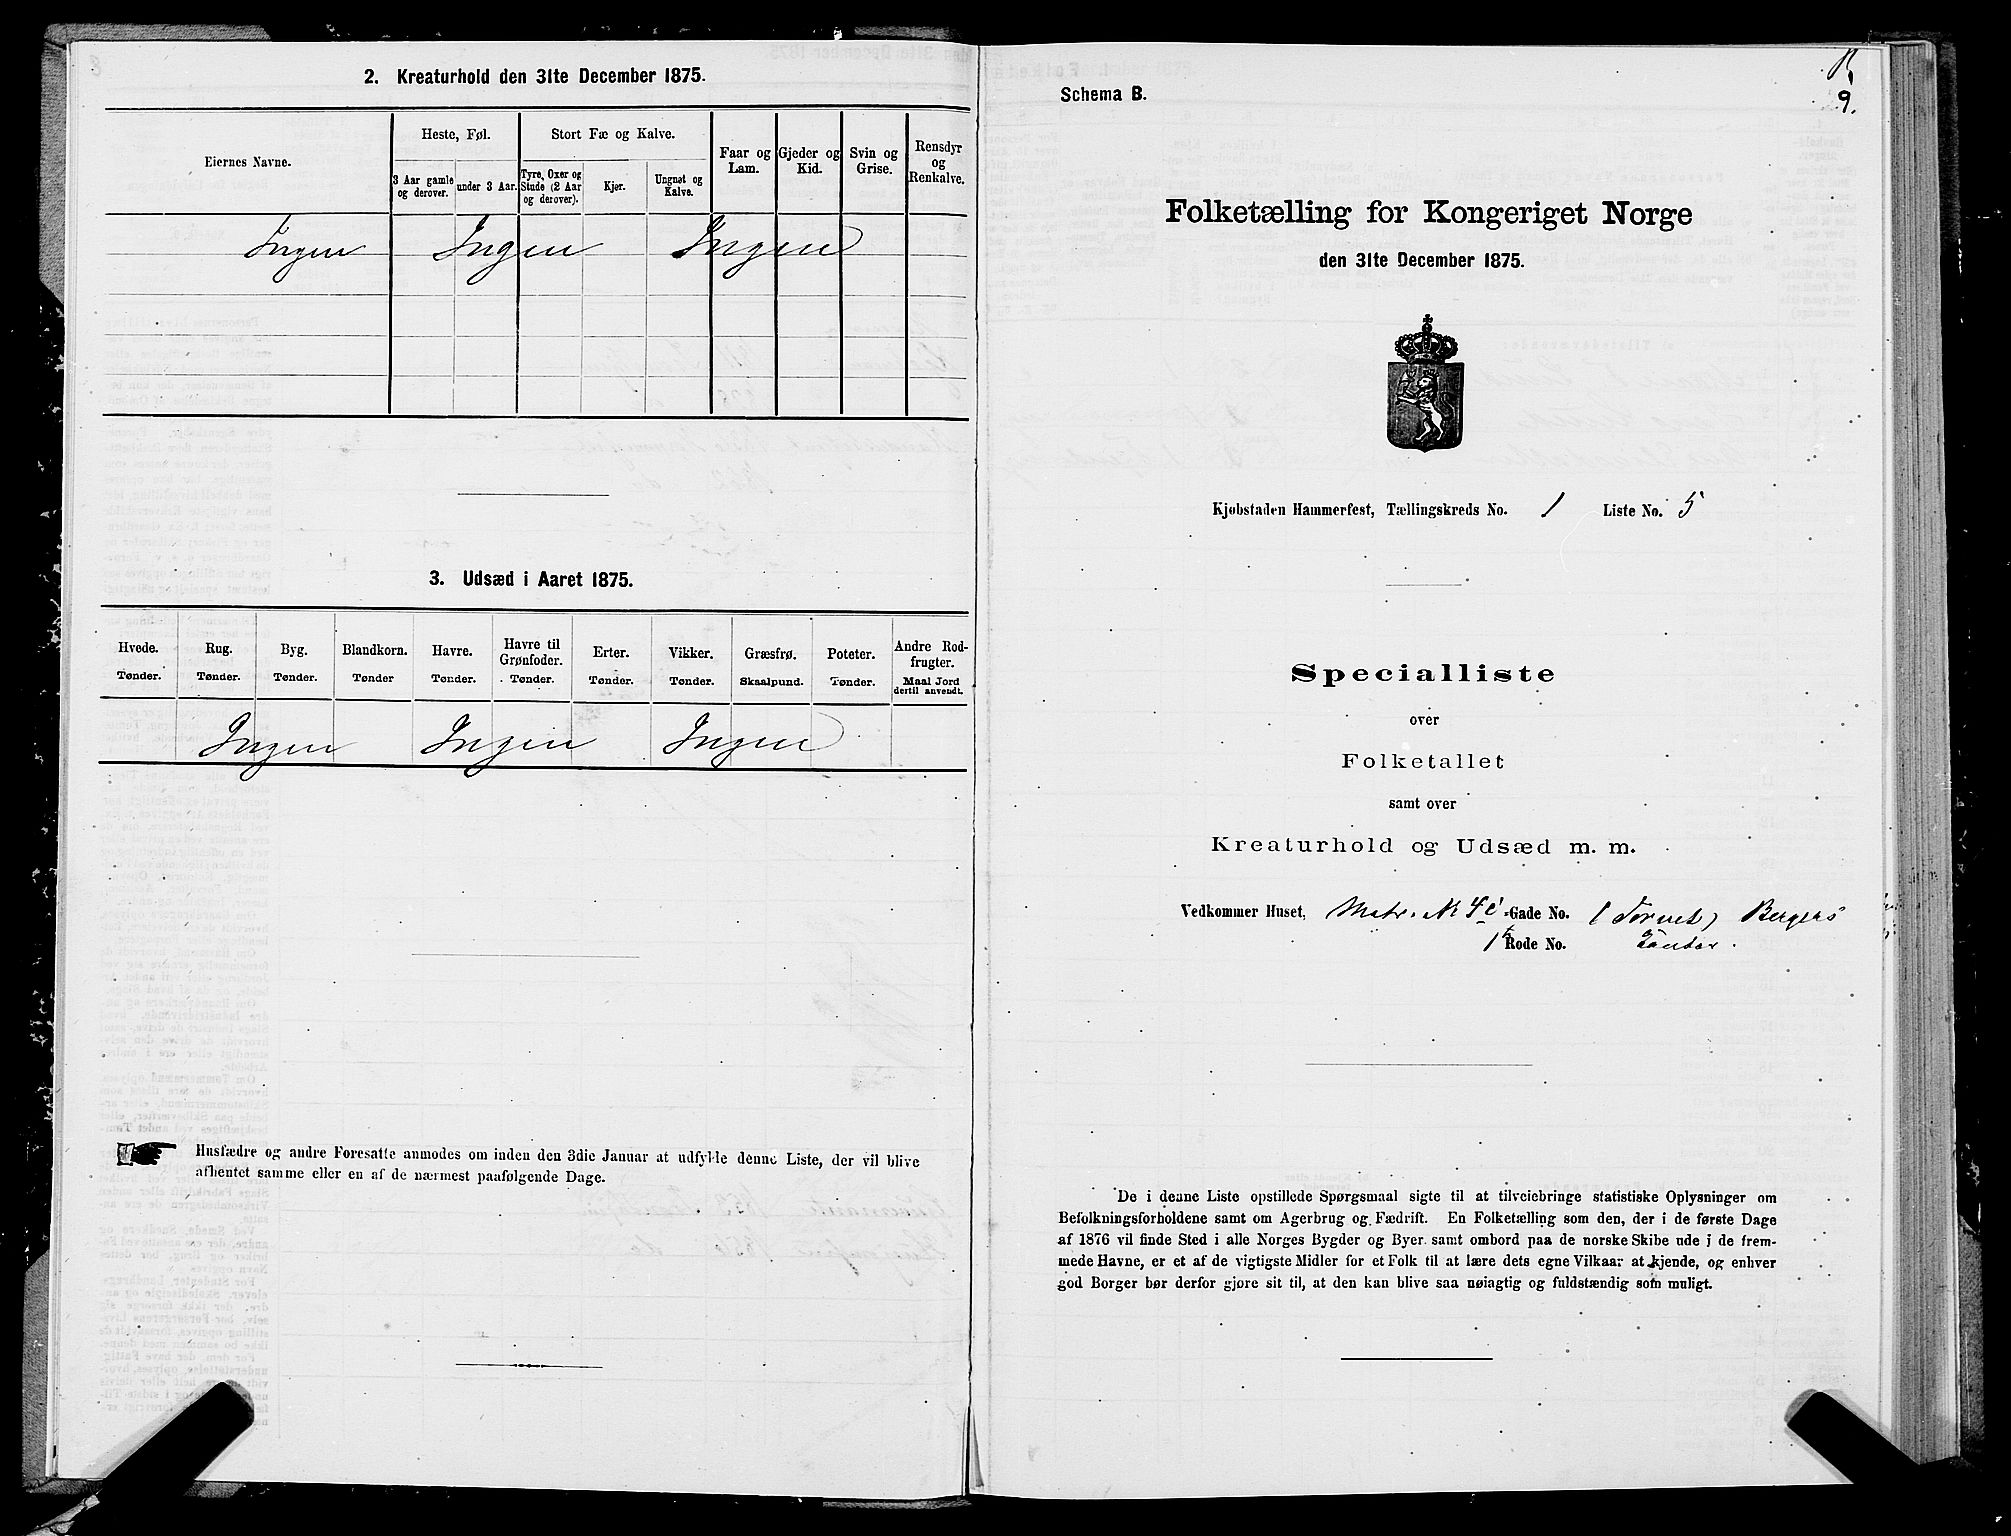 2. Kreaturhold den 31te December 1875.
Eiernes Navne.
Heste, Føl.
Stort Fæ og Kalve.
Faar og Lam.
Gjeder og Kid.
Svin og Grise.
Rensdyr og Renkalve.
3 Aar gamle og derover.
under 3 Aar.
Tyre, Oxer og Stude (2 Aar og derover).
Kjør.
Ungnøt og Kalve.
Ingen Ingen Ingen
3. Udsæd i Aaret 1875.
Hvede. Rug. Byg. Blandkorn. Havre. Havre til Grønfoder. Erter. Vikker. Græsfrø. Poteter. Andre Rodfrugter.
Tønder. Tønder. Tønder. Tønder Tønder. Tønder. Tønder. Tønder. Skaalpund. Tønder. Maal Jord dertil anvendt.
Ingen Ingen Ingen
Husfædre og andre Foresatte anmodes om inden den 3die Januar at udfylde denne Liste, der vil blive
afhentet samme eller en af de nærmest paafølgende Dage.
Schema B.
9.
Folketælling for Kongeriget Norge
den 31te December 1875.
Kjøbstaden Hammerfest, Tællingskreds No. 1 Liste No. 5
Specialliste
over
Folketallet
samt over
Kreaturhold og Udsæd m. m.
Vedkommer Huset, Matr. N 4c Gade No. (Torvet) Bergers
1 Rode No.
De i denne Liste opstillede Spørgsmaal sigte til at tilveiebringe statistiske Oplysninger om
Befolkningsforholdene samt om Agerbrug og Fædrift. En Folketælling som den, der i de første Dage
af 1876 vil finde Sted i alle Norges Bygder og Byer samt ombord paa de norske Skibe ude i de frem-
mede Havne, er et af de vigtigste Midler for et Folk til at lære dets egne Vilkaar at kjende, og enhver
god Borger bør derfor gjøre sit til, at den kan blive saa nøiagtig og fuldstændig som muligt.